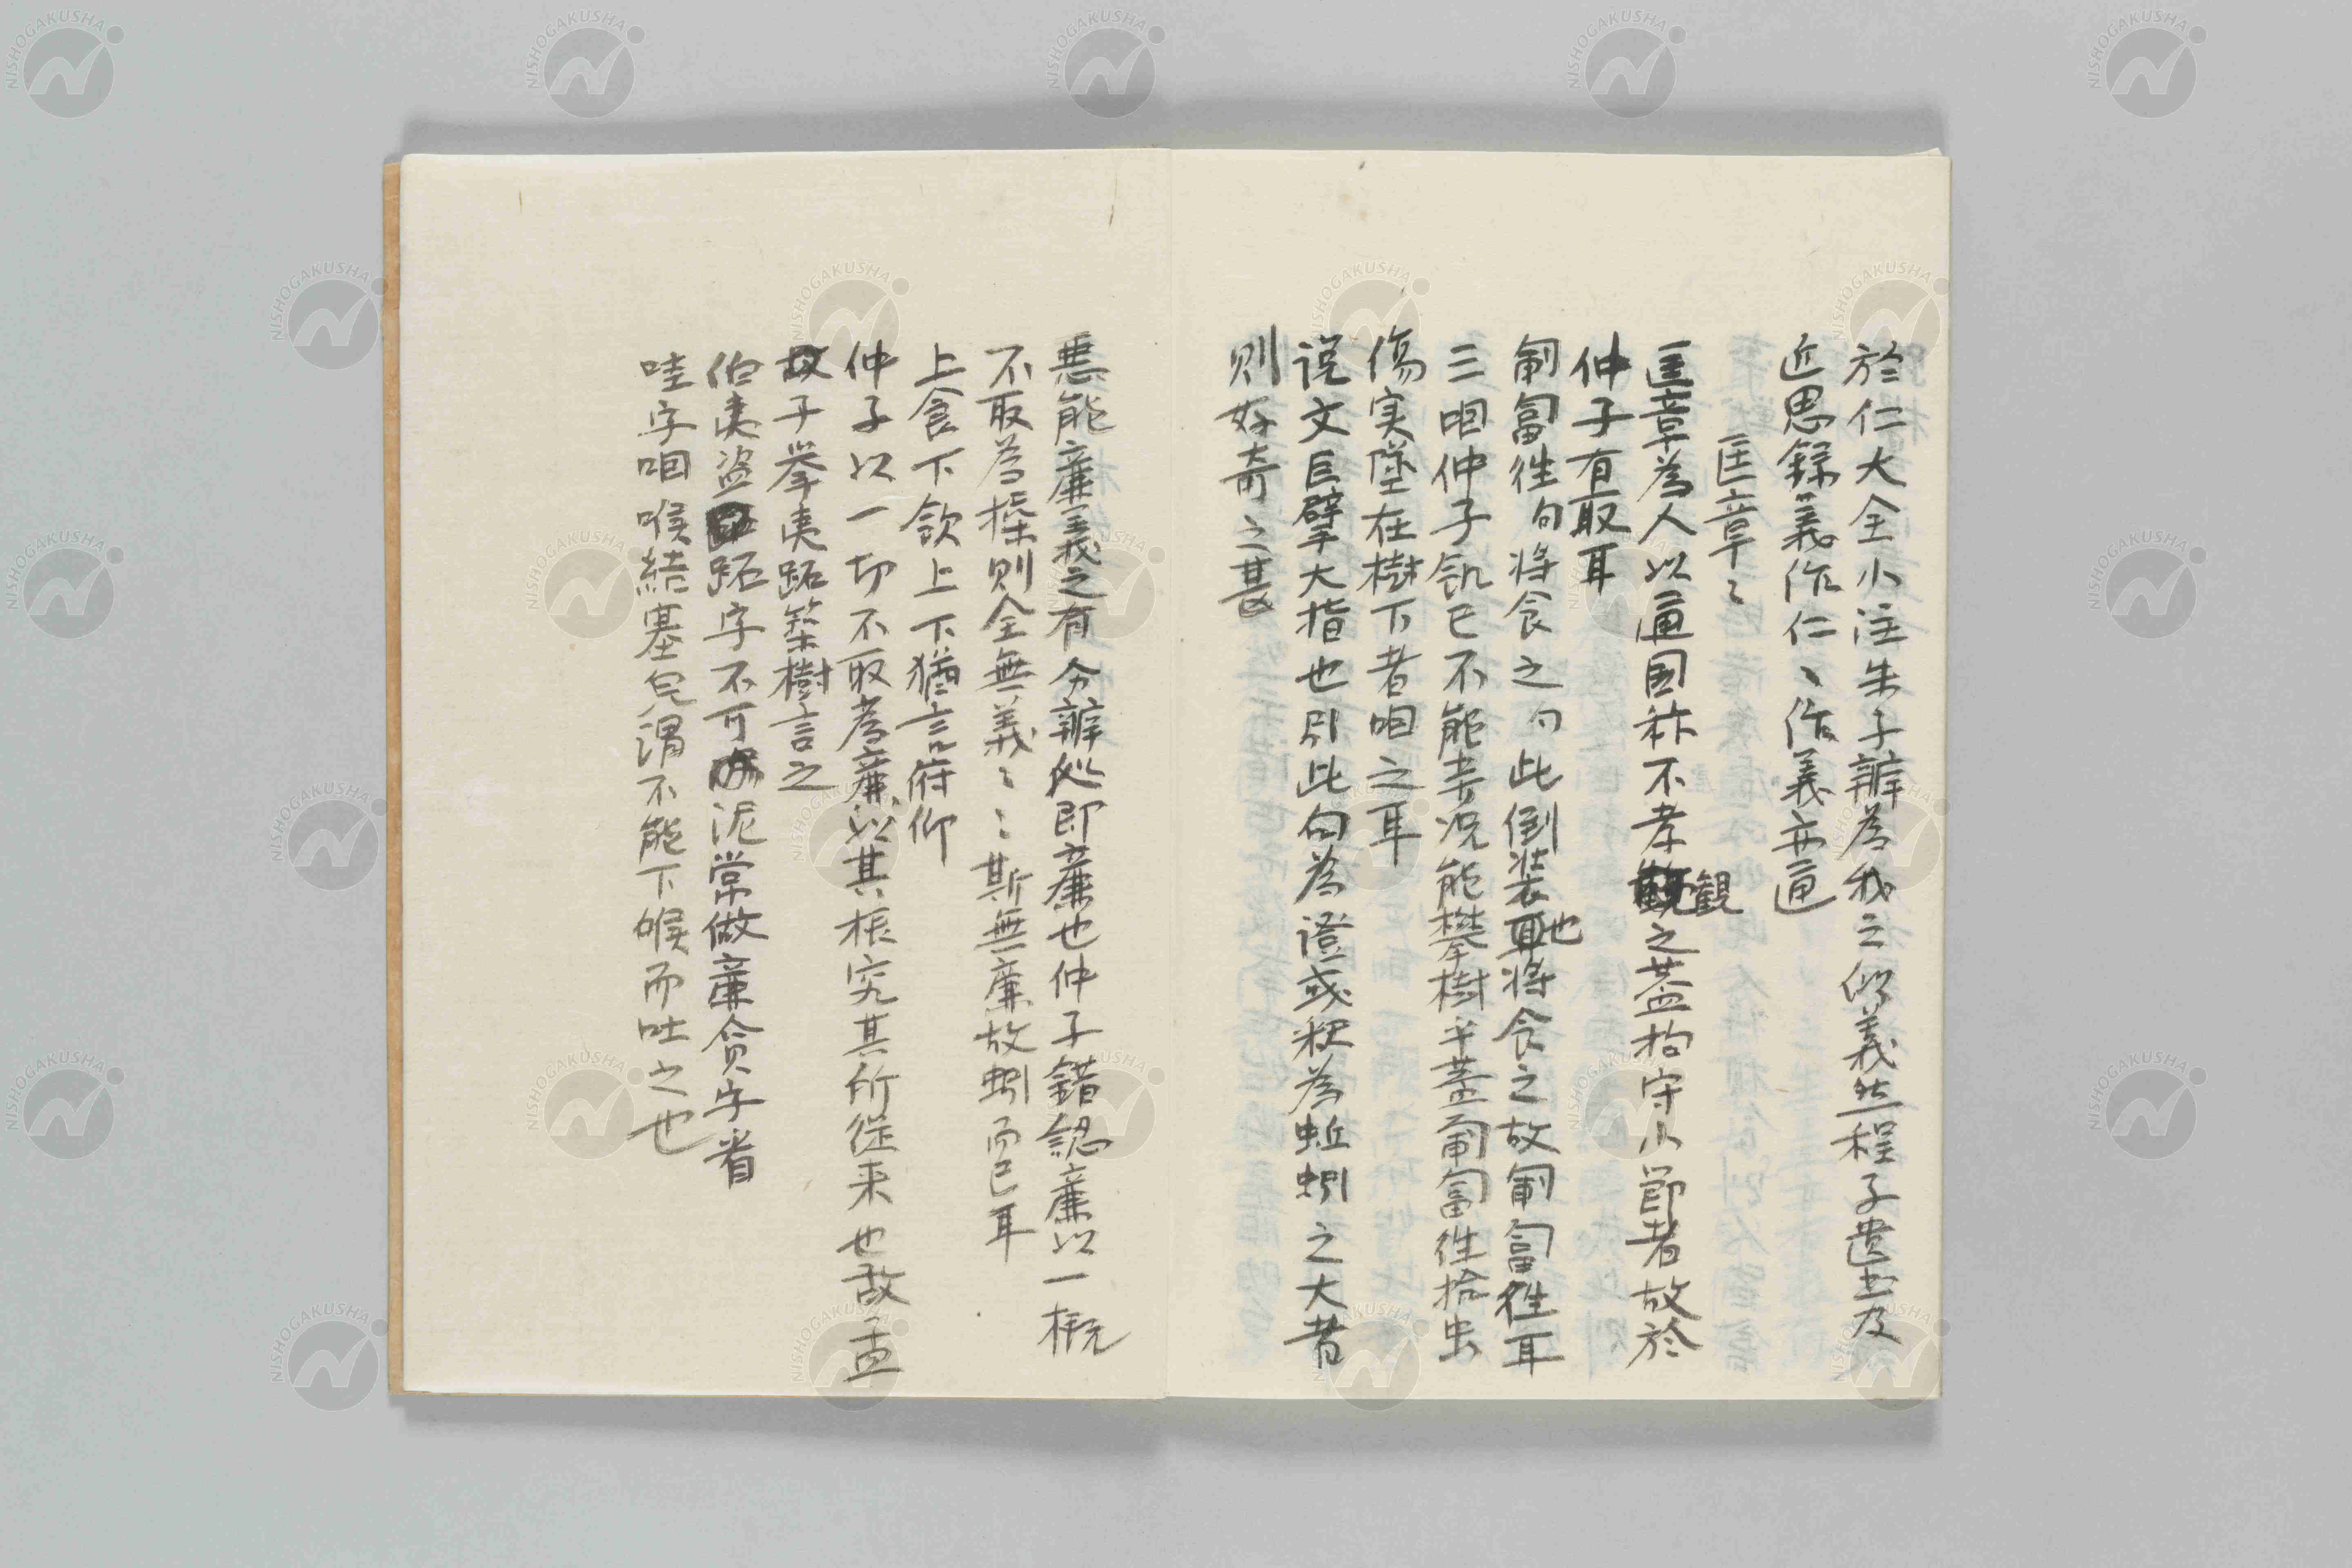 於仁大全小注朱子辨為我之似義然程子遺書及
近思録義作仁〻作義亦通
匡章〻
匡章為人以通国称不孝観之蓋拘守小節者故於
仲子有取耳
匍匐往句将食之句此倒装也将食之故匍匐往耳
三咽仲子飢已不能歩况能攀樹乎蓋匍匐往拾虫
傷実墜在樹下者咽之耳
説文巨擘大指也引此句為證或釈為蚯蚓之大者
則好奇之甚
悪能廉義之有分辨処即廉也仲子錯認廉以一概
不取為操則全無義〻〻斯無廉故蚓而已耳
上食下飲上下猶言俯仰
仲子以一切不取為廉以其根究其所從来也故孟
子挙夷跖築樹言之
伯夷盗跖字不可泥常做廉貪字看
哇字咽喉結塞皃謂不能下喉而吐之也
NISHOGAKUSHA